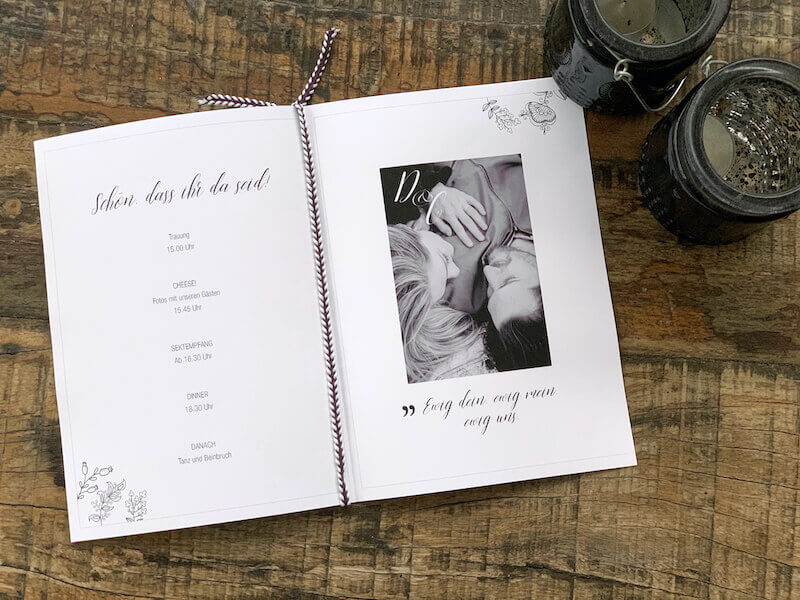 Schön, dass ihr da seid!
Trauung
15.00 Uhr
CHEESE!
Fotos mit unseren Gästen
15.45 Uhr
SEKTEMPFANG
Ab 16.30 Uhr
DINNER
18.30 Uhr
DANACH
Tanz und Beinbruch
D&
„ Ewig dein ewig mein
ewig uns